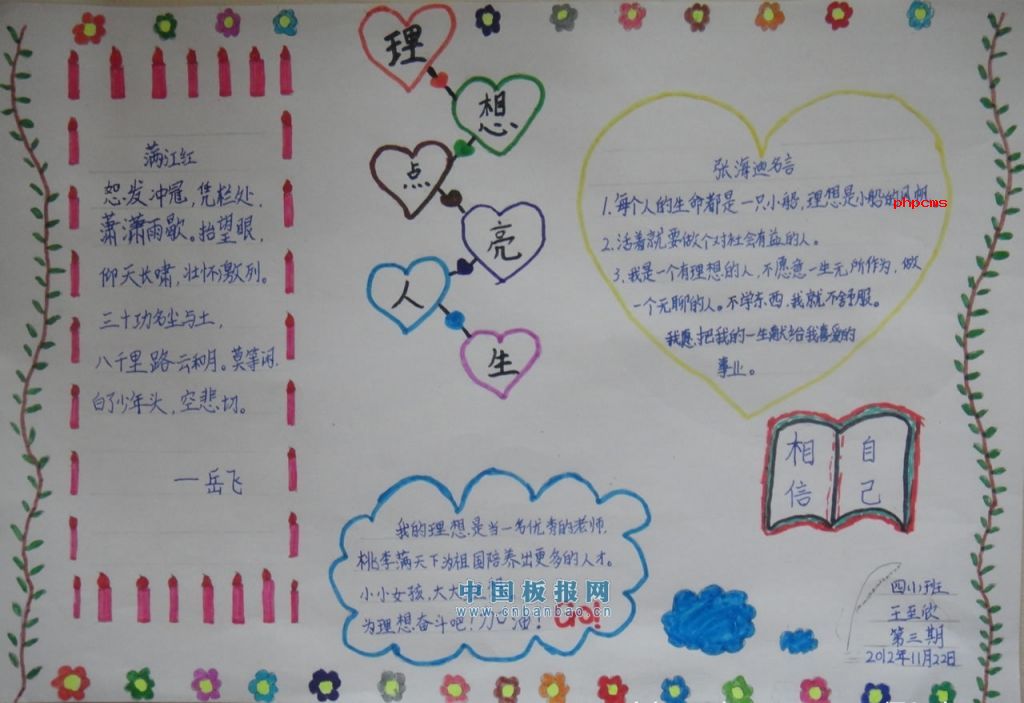 理
想
点
亮
人
生
满江红
怒发冲冠，凭栏处，
萧潇雨歇。抬望眼，
仰天长啸，壮怀激烈。
三十功名尘与土，
八千里路云和月。莫等闲，
白了少年头，空悲切。
一岳飞
张海迪名言
1.每个人的生命都是一只小船，理想是小船的风帆
phpcms
2.活着就要做个对社会有益的人。
3.我是一个有理想的人，不愿意一生无所作为，做
一个无聊的人。不学东西，我就不舒服。
我愿把我的一生献给我喜爱的
事业。
相信
自己
我的理想是当一名优秀的老师，
桃李满天下为祖国培养出更多的人才。
小小女孩，大大
为理想奋斗吧！加油！Go!
中国板报网
www.cnbanbao.cn
四(1)班
第三期
2012年11月22日